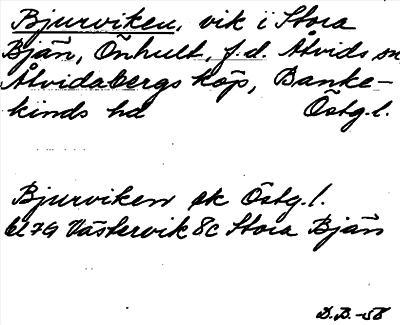 Bjurviken, vik i Stora
Bjän, Önhult, f.d. Åtvids sn
Åtvidabergs köp, Banke-
kinds hd Östg.l.
Bjurviken ek Östg.l.
bl 79 Västervik 8c Stora Bjän
D.B. -58